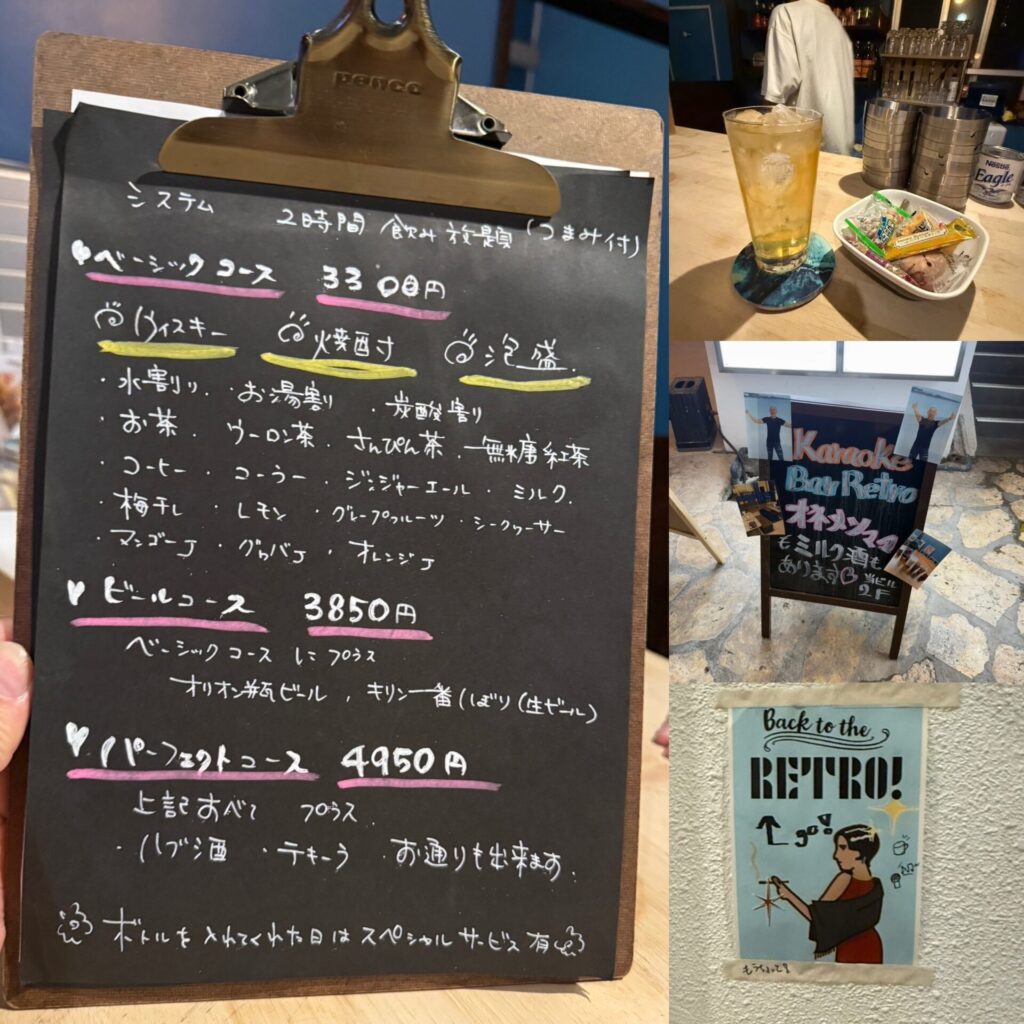 penco
システム 2時間 飲み放題 (つまみ付)
ベーシックコース 3300円
ウィスキー 焼酎 泡盛
・水割り ・お湯割 ・炭酸割り
・お茶 ・ウーロン茶 ・さんぴん茶 ・無糖紅茶
・コーヒー ・コーラー ・ジンジャーエール ・ミルク
・梅干し ・レモン ・グレープフルーツ ・シークヮーサー
・マンゴーJ ・グヮバJ ・オレンジJ
ビールコース 3850円
ベーシックコース にプラス
オリオン瓶ビール , キリン一番しぼり(生ビール)
パーフェクトコース 4950円
上記すべて プラス
・ハブ酒 ・テキーラ ・お通りも出来ます.
ボトルを入れてくれた日はスペシャルサービス有
Nestlé
Eagle
Karaoke
Bar Retro
もミルク酒も
あります
当ビル
2F
Back to the
RETRO!
go!
もうちょっと!